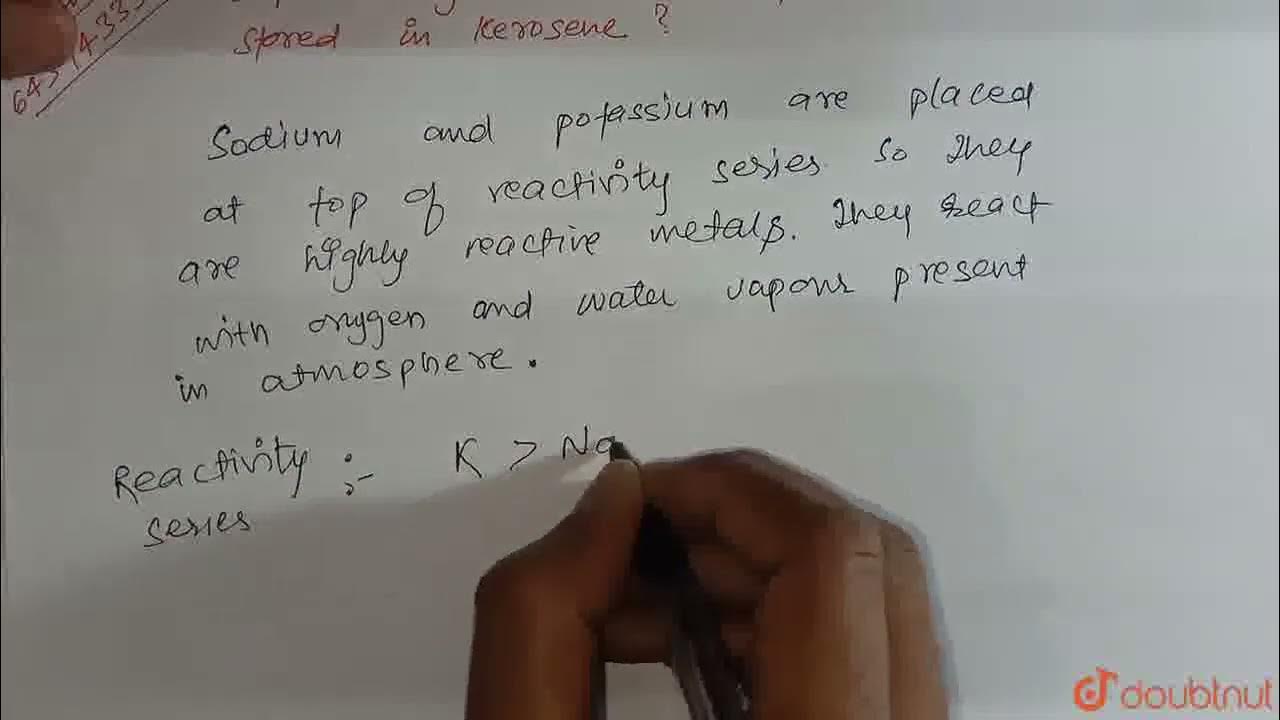 stored in kerosene ?
Sodium and potassium are placed
at top of reactivity series so They
are highly reactive metals. They react
with oxygen and water vapour present
in atmosphere.
Reactivity :- K > Na
series
doubtnut